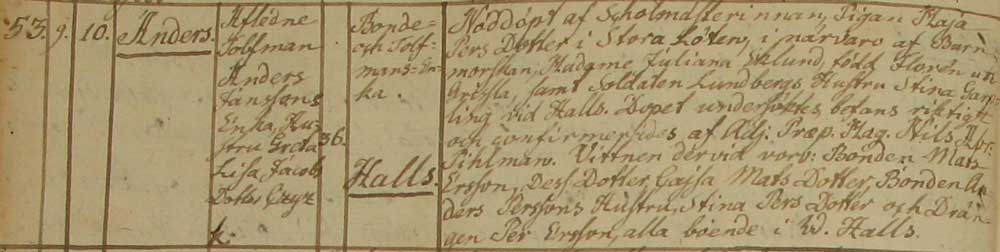 53. 9. 10. Anders.
Afledne
Tolfman
Anders
Jánssons
Enka, Hu-
stru Greta
Lisa Jacobs
Dotter
36.
Bonde-
och Tolf-
mans-En-
ka.
Halls.
Nöddöpt af Scholmästerinnan, Pigan Maja
Pers Dotter i Stora Löten, i närvaro af Barn-
morskan, Madame Juliana Eklund, född Floren
samt Soldaten Lundbergs Hustru Stina Gar-
ling vid Halls. Dopet undersöktes, befans riktigt
och confirmerades af Adj: Præp. Mag. Nils
Pihlman. Vittnen dervid voro: Bonden Mats
Ersson, Dess Dotter, Cajsa Mats Dotter, Bonden An-
ders Perssons Hustru, Stina Pers Dotter och Drän-
gen Per Ersson, alla boende i Halls.